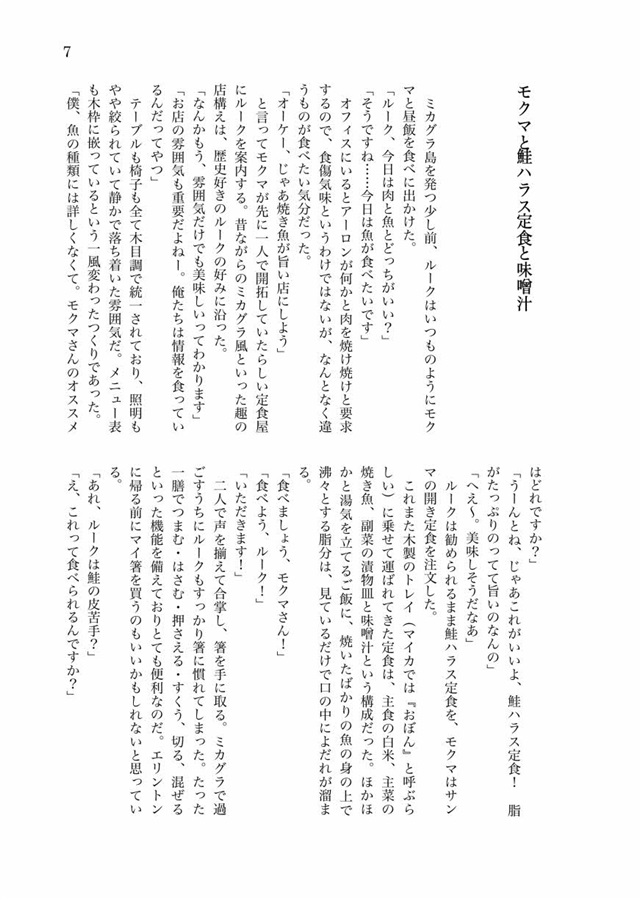 7
モクマと鮭ハラス定食と味噌汁
　ミカグラ島を発つ少し前、ルークはいつものようにモク
マと昼飯を食べに出かけた。
「ルーク、今日は肉と魚とどっちがいい？」
「そうですね……今日は魚が食べたいです」
　オフィスにいるとアーロンが何かと肉を焼け焼けと要求
するので、食傷気味というわけではないが、なんとなく違
うものが食べたい気分だった。
「オーケー、じゃあ焼き魚が旨い店にしよう」
　と言ってモクマが先に一人で開拓していたらしい定食屋
にルークを案内する。昔ながらのミカグラ風といった趣の
店構えは、歴史好きのルークの好みに沿った。
「なんかもう、雰囲気だけでも美味しいってわかります」
「お店の雰囲気も重要だよねー。俺たちは情報を食ってい
るんだってやつ」
　テーブルも椅子も全て木目調で統一されており、照明も
やや絞られていて静かで落ち着いた雰囲気だ。メニュー表
も木枠に嵌っているという一風変わったつくりであった。
「僕、魚の種類には詳しくなくて。モクマさんのオススメ
はどれですか？」
「うーんとね、じゃあこれがいいよ、鮭ハラス定食！　脂
がたっぷりのってて旨いのなんの」
「へえ〜。美味しそうだなあ」
　ルークは勧められるまま鮭ハラス定食を、モクマはサン
マの開き定食を注文した。
　これまた木製のトレイ（マイカでは『おぼん』と呼ぶら
しい）に乗せて運ばれてきた定食は、主食の白米、主菜の
焼き魚、副菜の漬物皿と味噌汁という構成だった。ほかほ
かと湯気を立てるご飯に、焼いたばかりの魚の身の上で
沸々とする脂分は、見ているだけで口の中によだれが溜ま
る。
「食べましょう、モクマさん！」
「食べよう、ルーク！」
「いただきます！」
　二人で声を揃えて合掌し、箸を手に取る。ミカグラで過
ごすうちにルークもすっかり箸に慣れてしまった。たった
一膳でつまむ・はさむ・押さえる・すくう、切る、混ぜる
といった機能を備えておりとても便利なのだ。エリントン
に帰る前にマイ箸を買うのもいいかもしれないと思ってい
る。
「あれ、ルークは鮭の皮苦手？」
「え、これって食べられるんですか？」